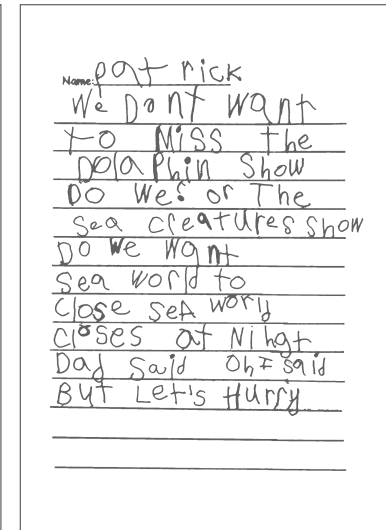 Name: patrick
We Dont want
to Miss the
Dolaphin Show
Do We? or The
Sea creatures show
Do we want
Sea world to
close Sea world
closes at Nihgt
Dad Said Oh I said
But Let's Hurry